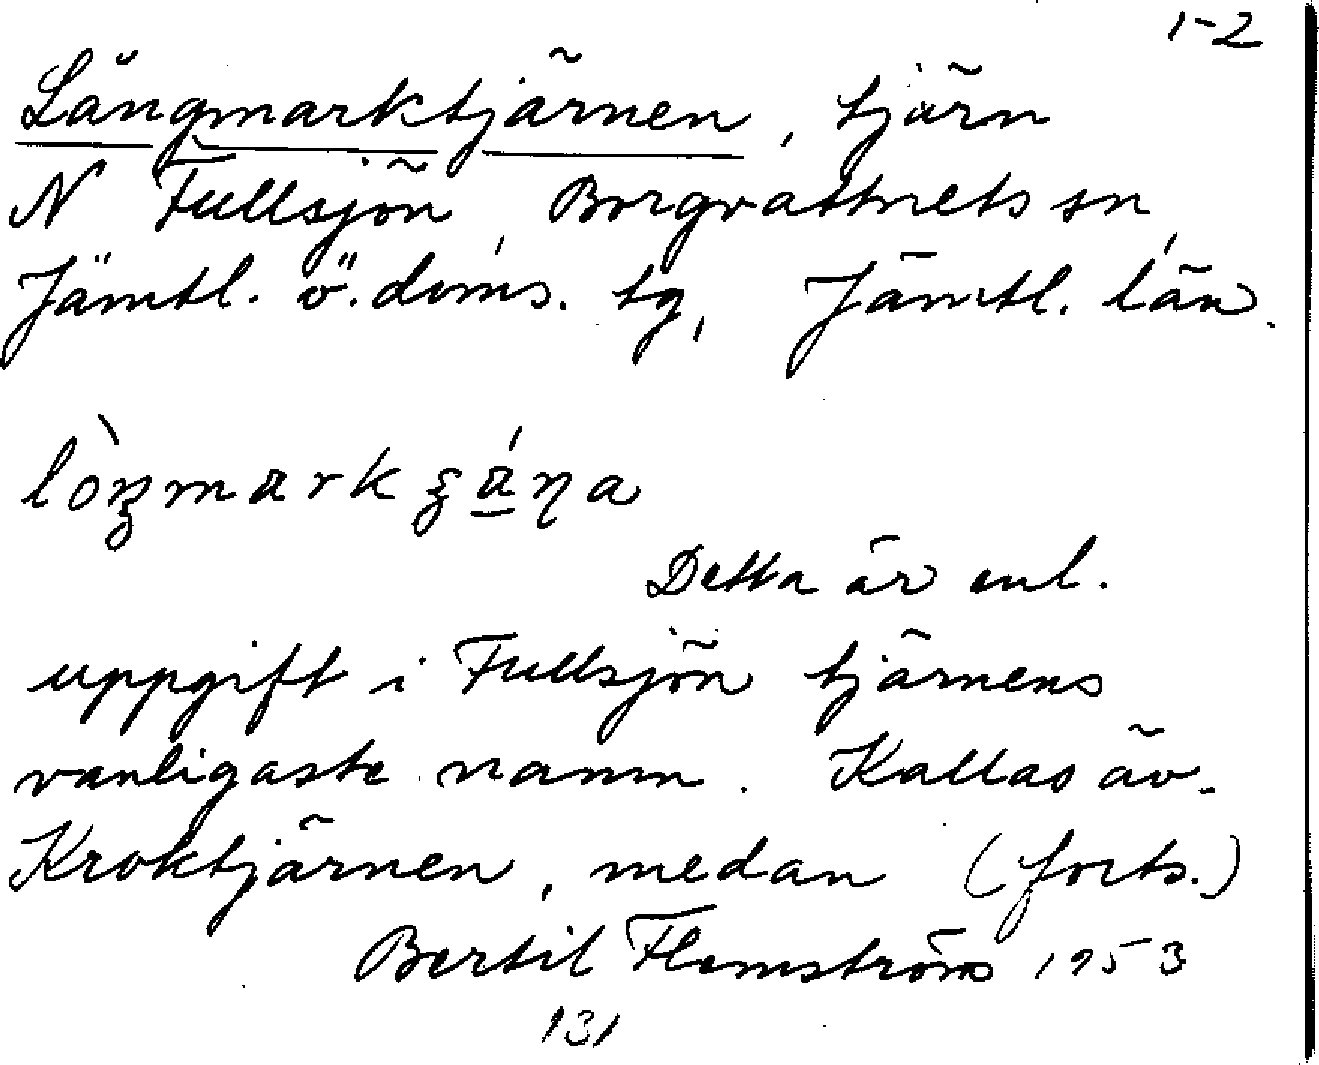 1-2
Långmarktjärnen, tjärn
N Fullsjön, Borgvattnets sn,
Jämtl. ö. doms. tg, Jämtl. län.
Detta är enl.
uppgift i Fullsjön tjärnens
vanligaste namn. Kallas äv.
Kroktjärnen, medan (forts.)
Bertil Flemström 1953
131